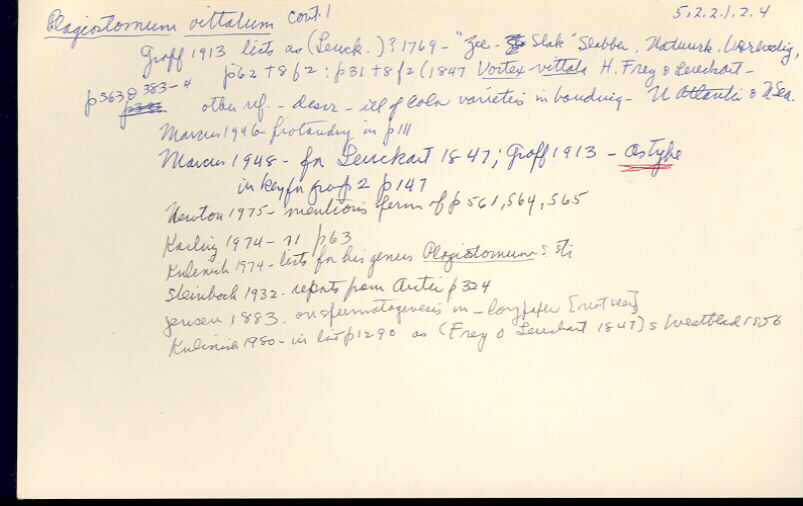 Plagiostomum vittatum cont. 1 5.2.2.1.2.4
Graff 1913 lists as (Leuck.) ? 1769 - "Zee - Slak" Slabber, Natuurk. Verlustig,
p62 t8 f2 : p31 t8 f2 (1847 Vortex vittata H. Frey & Leuckart -
p363 & 383-4 other ref. - descr - ill of color varieties in banding - N Atlantic & N Sea.
Marcus 1946 - protandry in p111
Marcus 1948 - fn Leuckart 1847; Graff 1913 - as type
in key fn grp 2 p147
Newton 1975 - mentions sperm of p 561, 564, 565
Karling 1974 - n p63
Kulinich 1974 - lists for his genus Plagiostomum s. str
Steinböck 1932 - reports from Arctic p324
Jensen 1883. on spermatogenesis in - long paper [not seen]
Kulinich 1980 - in list p1290 as (Frey & Leuckart 1847) s Westblad 1956